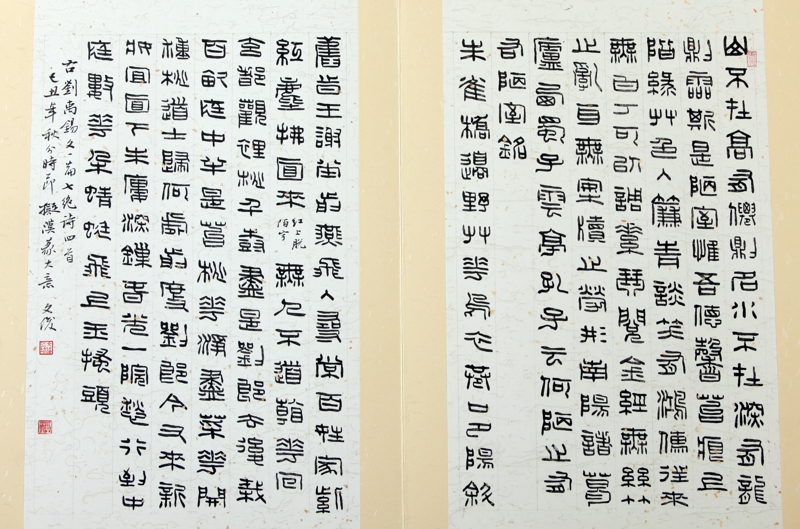 山不在高有僊則名水不在深有龍
則靈斯是陋室惟吾德馨苔痕上
階綠艸色入簾青談笑有鴻儒往來
無白丁可以調素琴閱金經無絲竹
之亂耳無案牘之勞形南陽諸葛
廬西蜀子雲亭孔子云何陋之有
右陋室銘
朱雀橋邊野艸花烏衣巷口夕陽斜
舊時王謝堂前燕飛入尋常百姓家紫
紅塵拂面來紅上脫陌字無人不道看花回
玄都觀裡桃千樹盡是劉郎去後栽
百畝庭中半是苔桃花淨盡菜花開
種桃道士歸何處前度劉郎今又來新
妝宜面下朱樓深鎖春光一院愁行到中
庭數花朵蜻蜓飛上玉搔頭
右劉禹錫文一篇七絕詩四首
己丑年秋分時節擬漢篆大意文俊